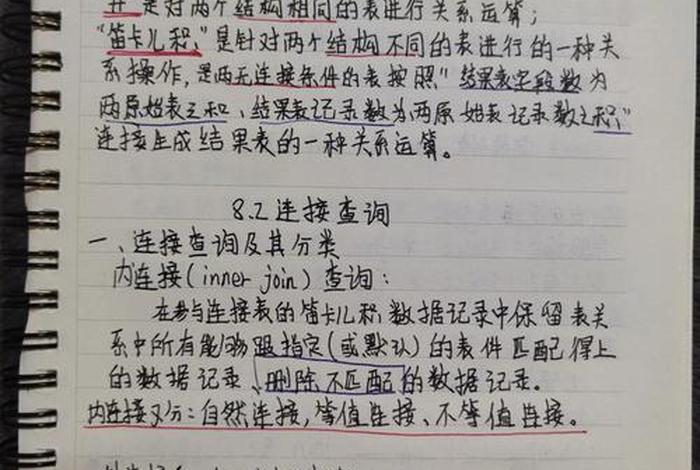 并"是对两个结构相同的表进行关系运算；
"笛卡儿积"是针对两个结构不同的表进行的一种关
系操作，是两无连接条件的表按照"结果表字段数为
两原始表之和、结果表记录数为两原始表记录数之积"
连接生成结果表的一种关系运算。
8.2连接查询
一、连接查询及其分类
内连接(inner join)查询：
在参与连接表的笛卡儿积数据记录中保留表关
系中所有能够跟指定(或默认)的表件匹配得上
的数据记录、删除不匹配的数据记录.
内连接又分：自然连接，等值连接、不等值连接。